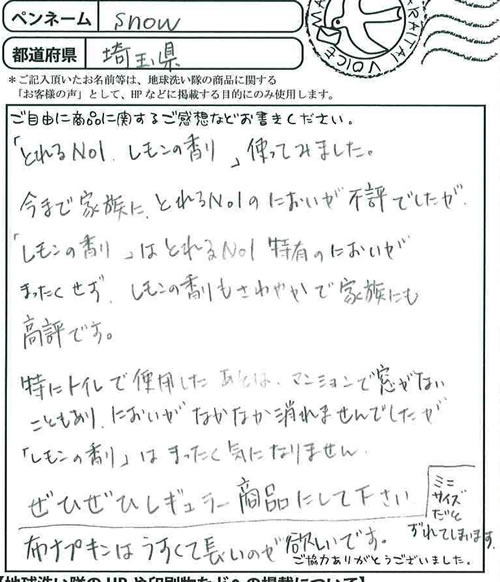 ペンネーム snow
都道府県 埼玉県
＊ご記入頂いたお名前等は、地球洗い隊の商品に関する
「お客様の声」として、HPなどに掲載する目的にのみ使用します。
ARAITAI VOICE
ご自由に商品に関するご感想などお書きください。
「とれるNO1.レモンの香り」使ってみました。
今まで家族に、とれるNO1のにおいが不評でしたが、
「レモンの香り」はとれるNO1特有のにおいが
まったくせず、レモンの香りもさわやかで家族にも
高評です。
特にトイレで使用したあとは、マンションで窓がない
こともあり、においがなかなか消れませんでしたが
「レモンの香り」はまったく気になりません。
ぜひぜひレギュラー商品にして下さい
ミニ
サイズ
だと
ずれてしまいます。
布ナプキンはうすくて長いのが欲しいです。
ご協力ありがとうございました。